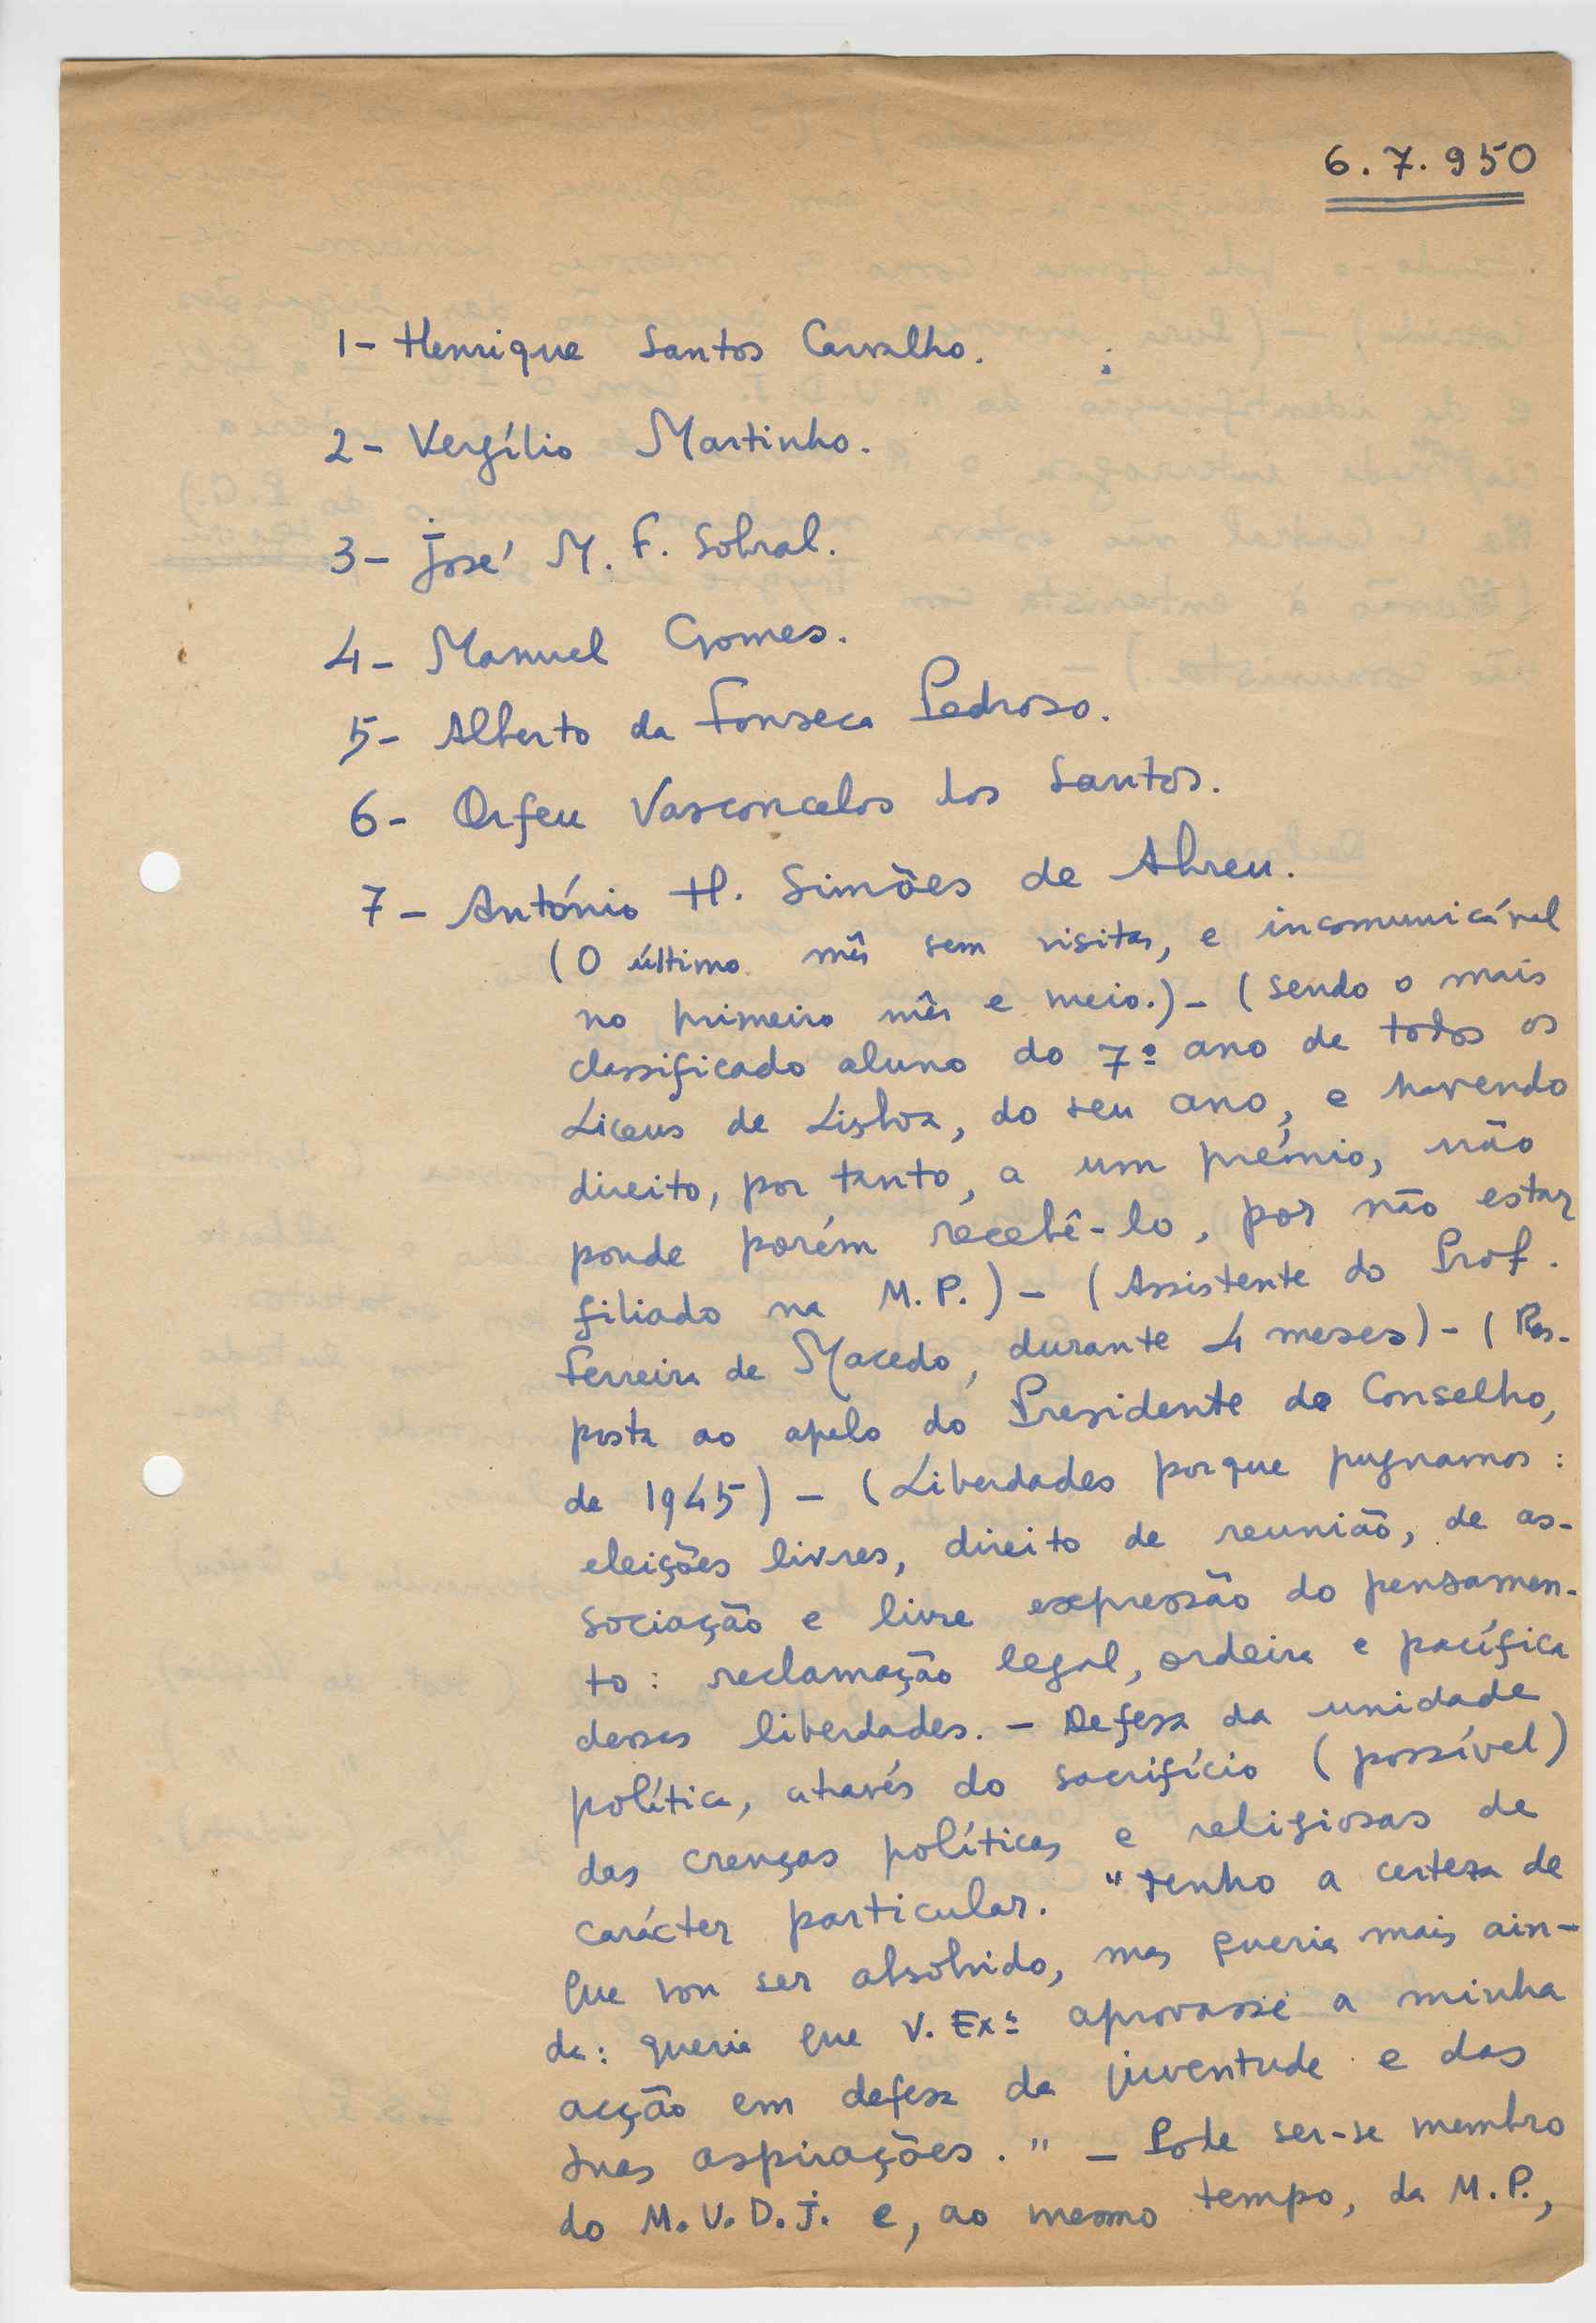 6.7.950
1- Henrique Santos Carvalho.
2- Vergílio Martinho.
3- José M. F. Sobral.
4- Manuel Gomes.
5- Alberto da Fonseca Pedroso.
6- Orfeu Vasconcelos dos Santos.
7- António H. Simões de Abreu.
(O último mês sem visitas, e incomunicável
no primeiro mês e meio.) - (Sendo o mais
classificado aluno do 7º ano de todos os
Liceus de Lisboa, do seu ano, e havendo
direito, por tanto, a um prémio, não
ponde porém recebê-lo, por não estar
filiado na M.P.) - (Assistente do Prof.
Ferreira de Macedo, durante 4 meses) - (Res-
posta ao apelo do Presidente do Conselho,
de 1945) - (Liberdades porque pugnamos:
eleições livres, direito de reunião, de as-
sociação e livre expressão do pensamen-
to: reclamação legal, ordeira e pacífica
dessas liberdades. - Defesa da unidade
política, através do sacrifício (possível)
das crenças políticas e religiosas de
carácter particular. "Tenho a certeza de
que vou ser absolvido, mas queria mais ain-
da: queria que V. Exª aprovasse a minha
acção em defesa da juventude e das
suas aspirações." - Pode ser-se membro
do M.U.D.J. e, ao mesmo tempo, da M.P.,